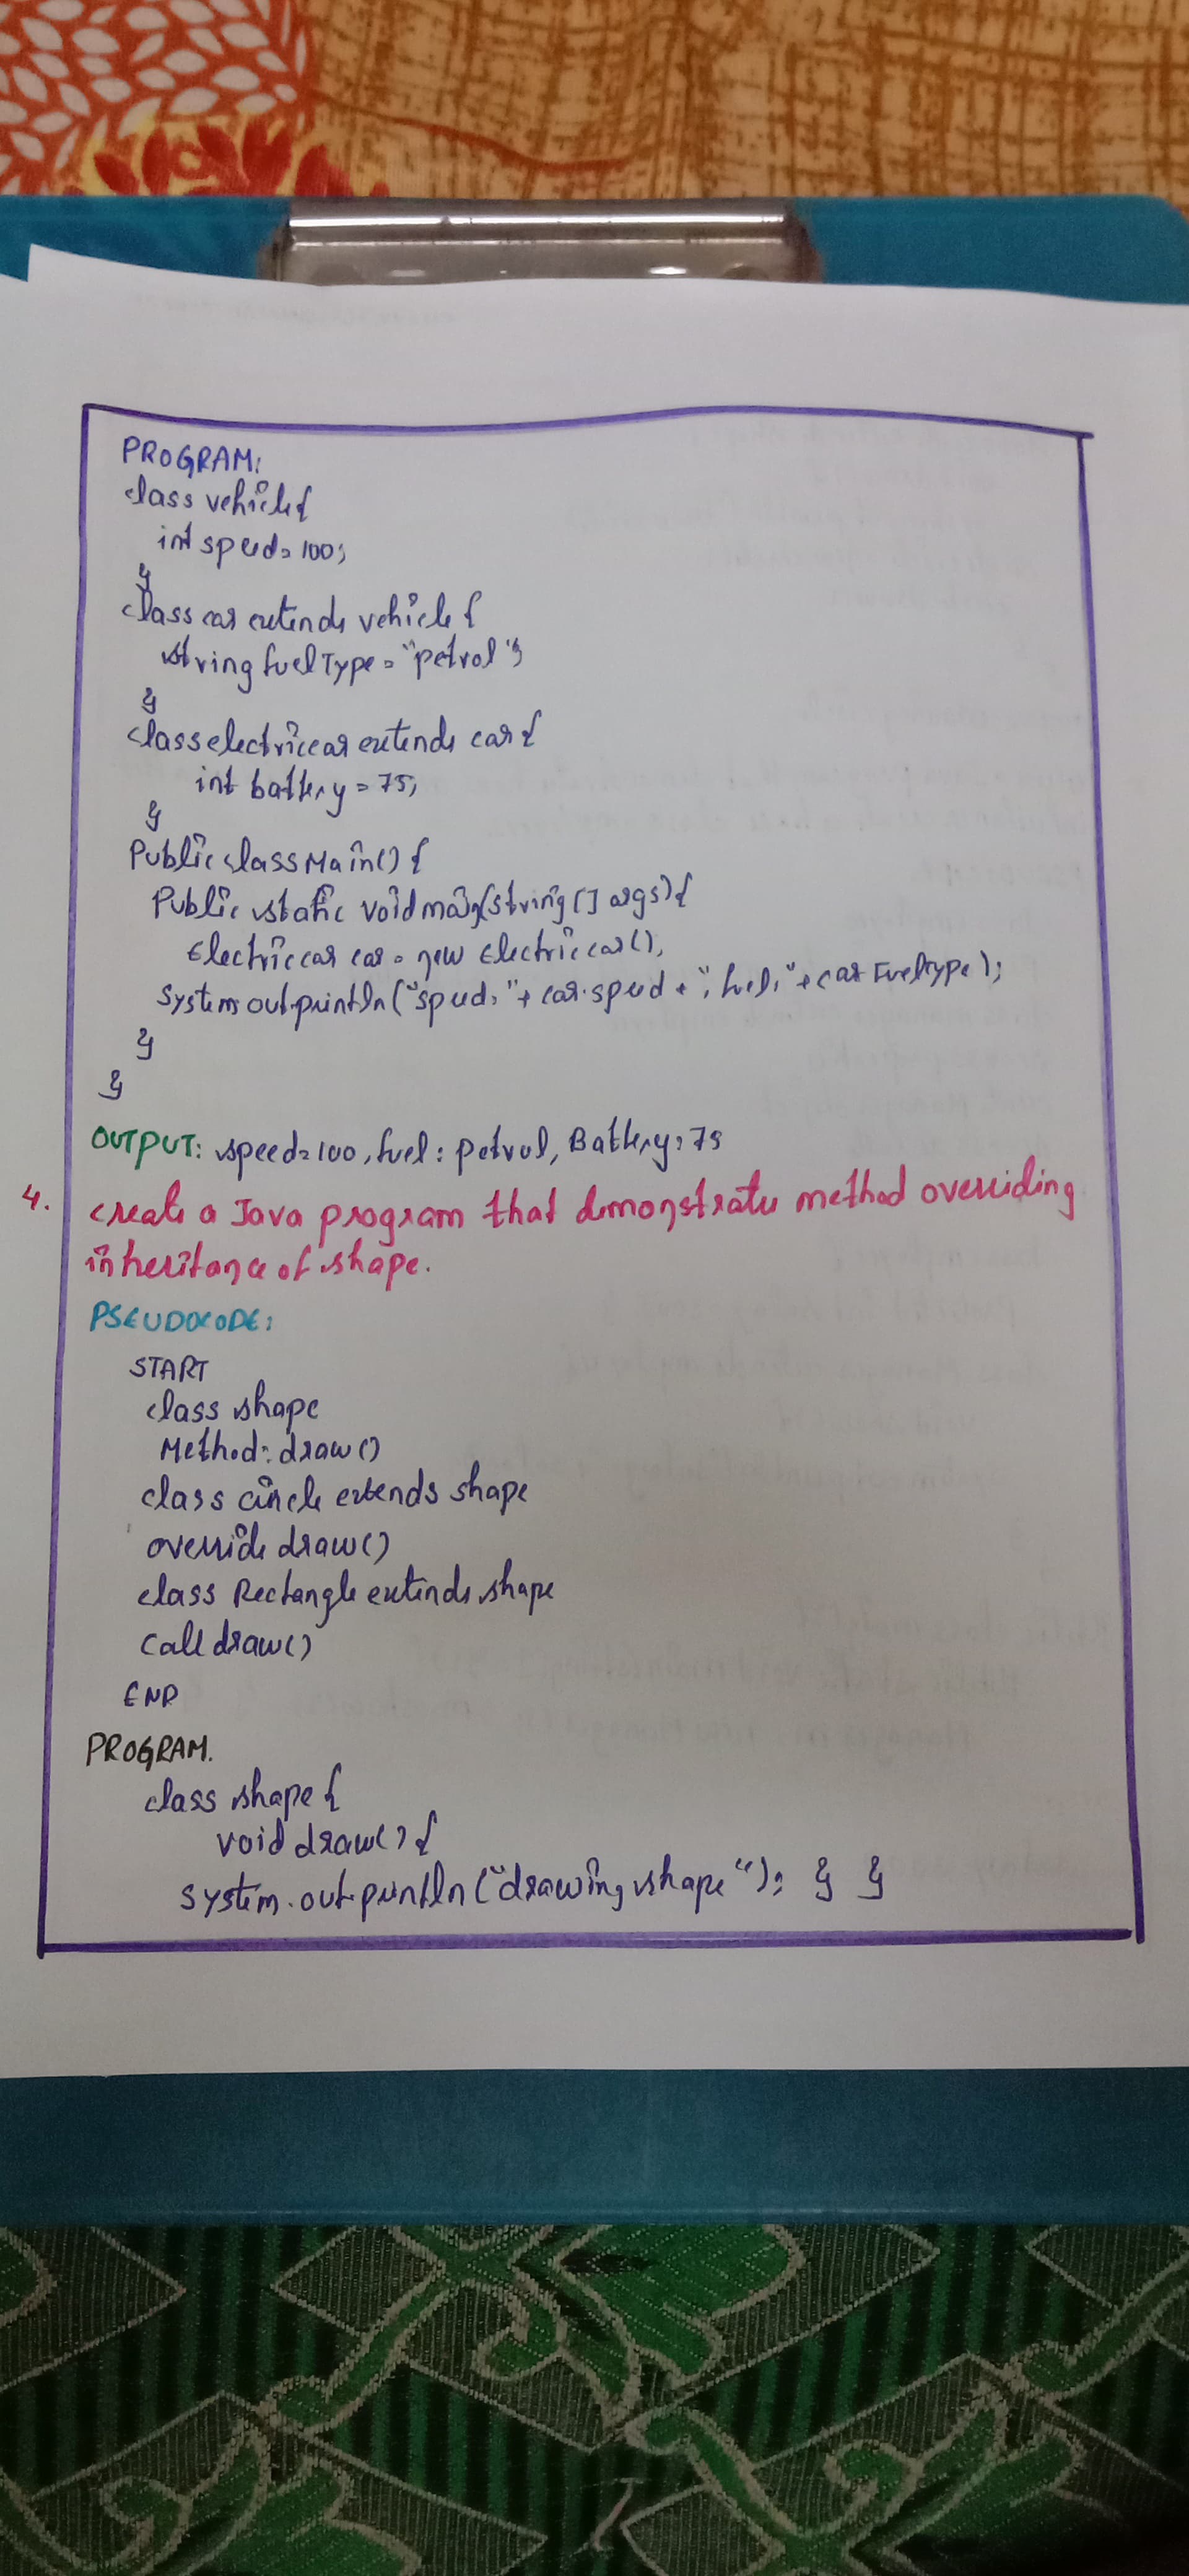 PROGRAM:
class vehicle{
int speed=100;
}
class car extends vehicle {
string fuelType = "petrol";
}
class electriccar extends car {
int battery = 75;
}
Public class Main() {
Public static void main(string [] args) {
Electriccar car = new Electriccar();
System.out.println("speed: "+ car.speed + ", fuel: "+ car.FuelType);
}
}
OUTPUT: speed=100, fuel: petrol, Battery: 75
4. create a Java program that demonstrates method overriding
inheritance of shape.
PSEUDOCODE:
START
class shape
Method: draw()
class circle extends shape
override draw()
class Rectangle extends shape
call draw()
END
PROGRAM.
class shape {
void draw() {
System.out.println("drawing shape"); } }